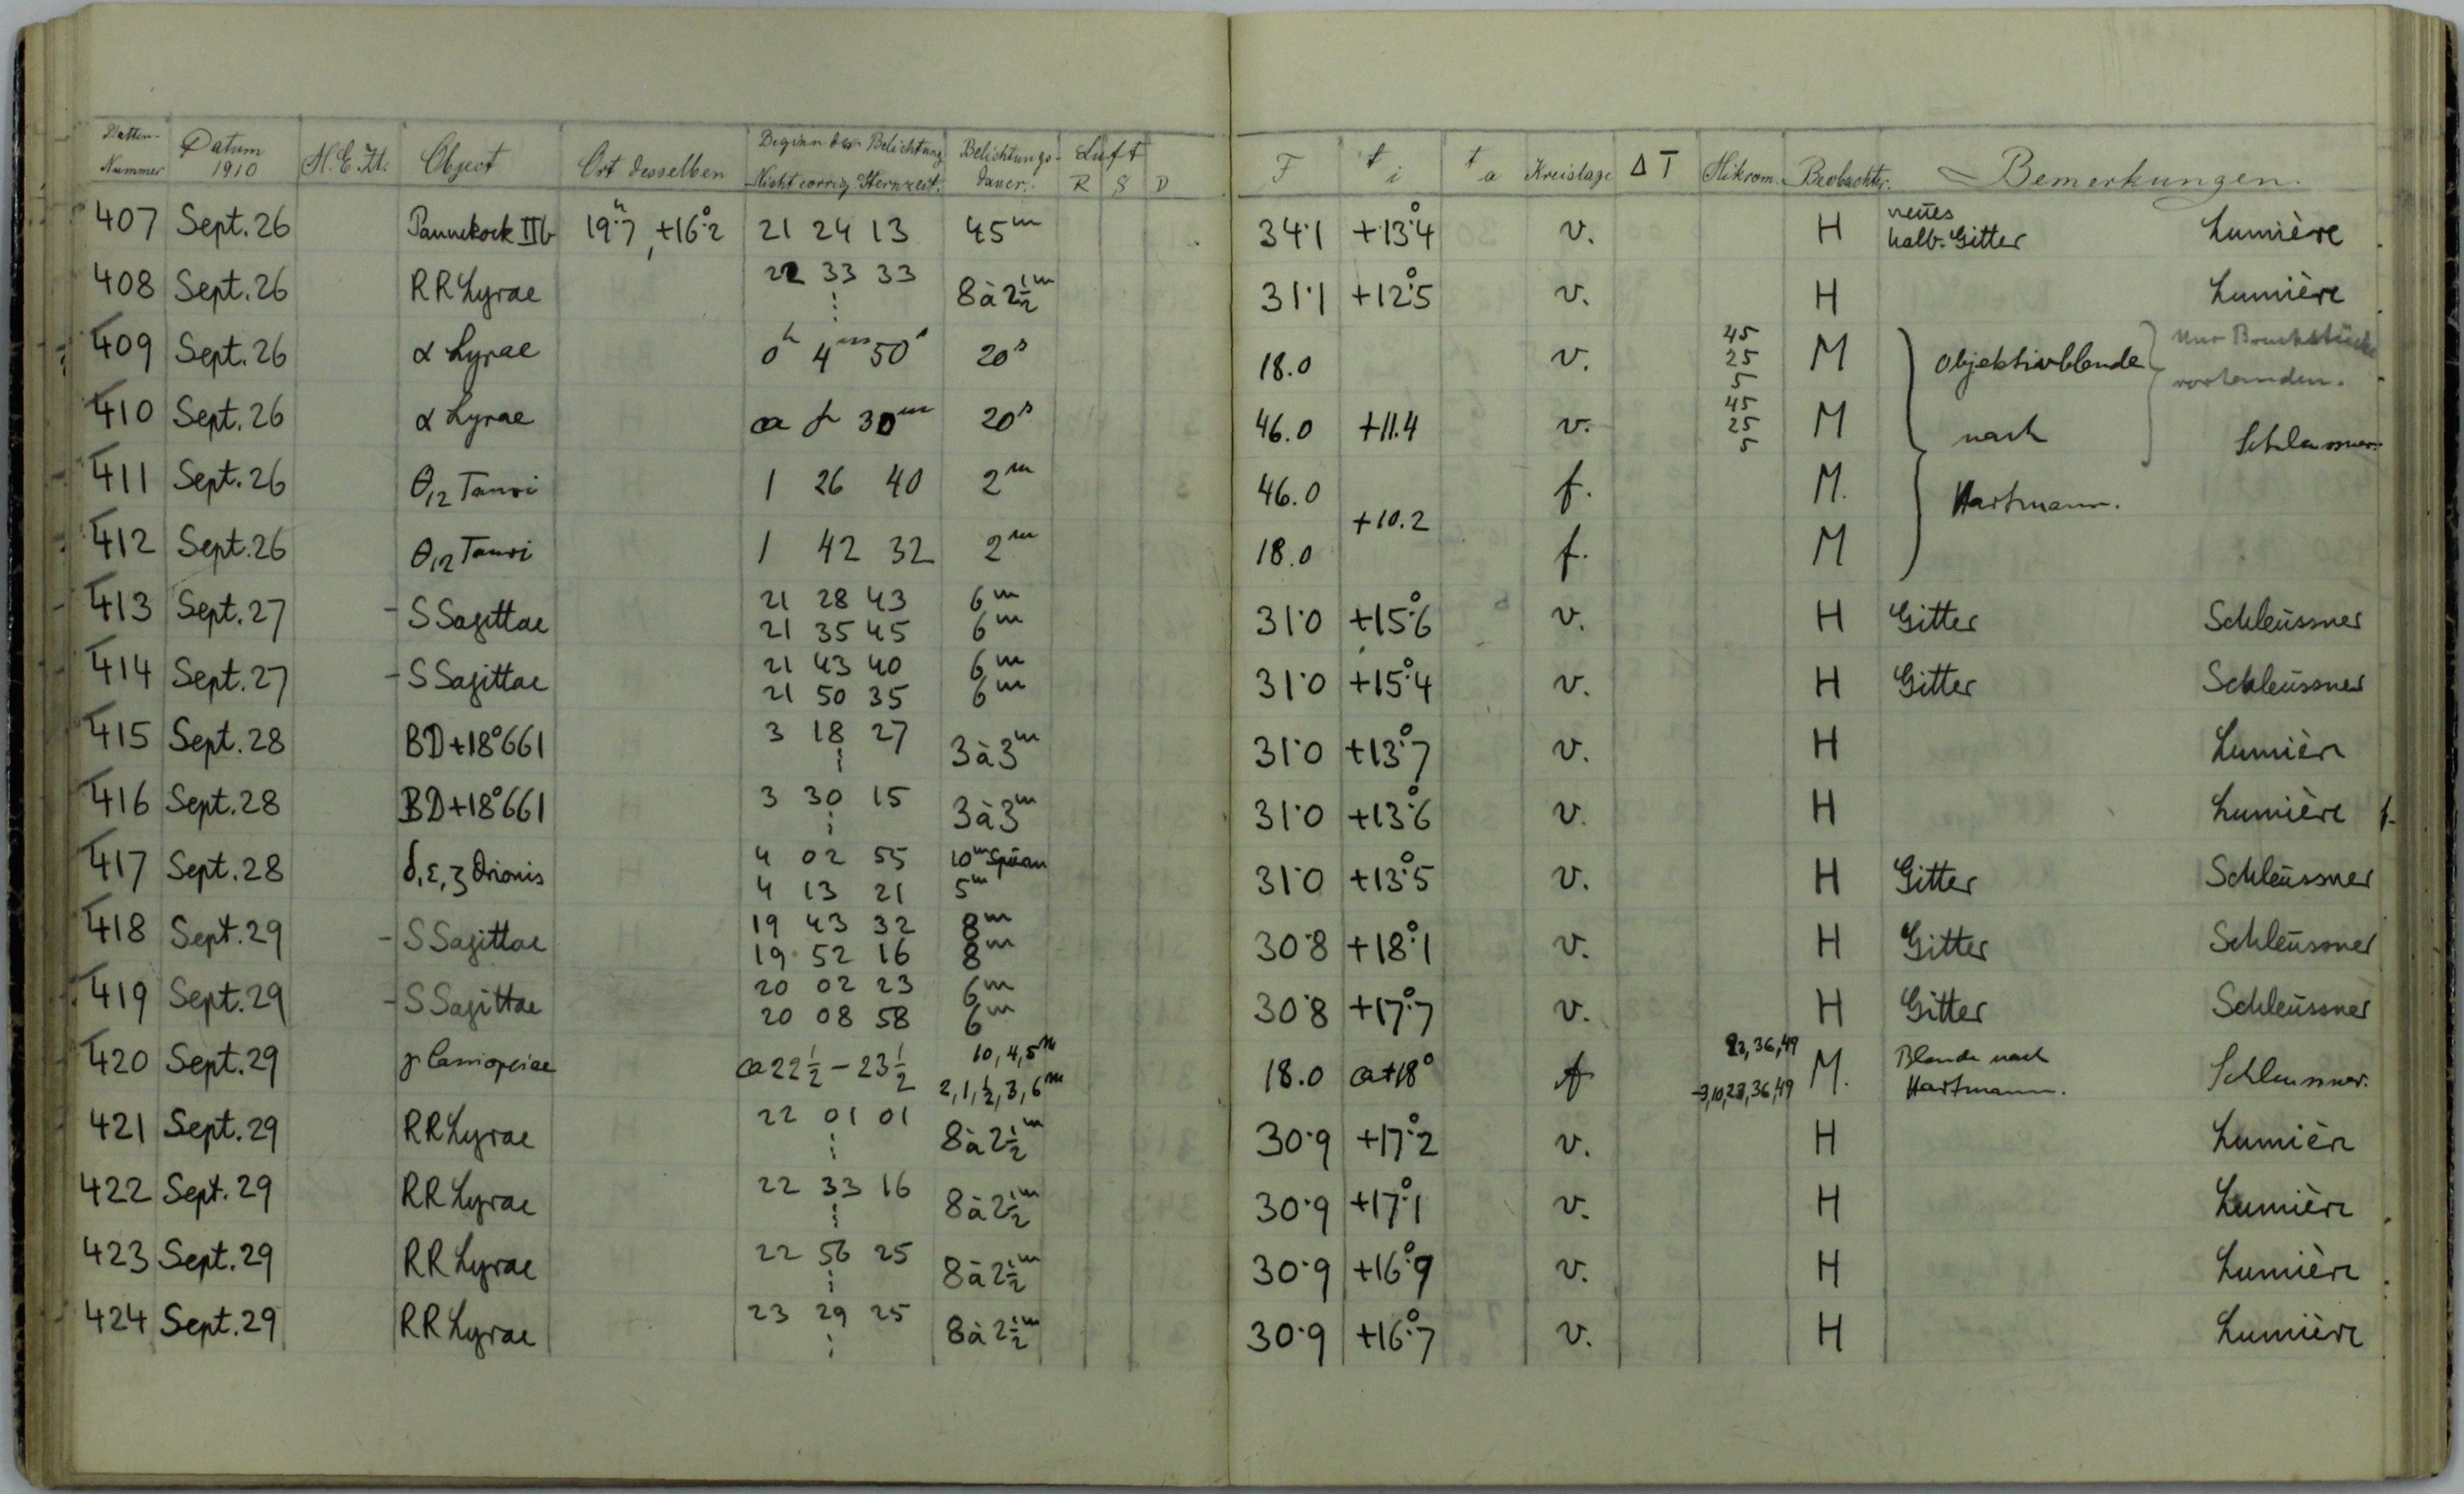 Platten- Nummer Datum 1910 M.E.Zt. Object Ort desselben Beginn der Belichtung Nicht corrig. Sternzeit. Belichtungs- dauer. Luft R S D F t i t a Kreislage ΔT Mikrom. Beobachter. Bemerkungen.
407 Sept. 26 Pannekoek IIb 19h.7, +16°.2 21 24 13 45m 34.1 +13°.4 v. H neues halb. Gitter Lumière
408 Sept. 26 RR Lyrae 22 33 33 ⋮ 8 à 2½m 31.1 +12°.5 v. H Lumière
409 Sept. 26 α Lyrae 0h 4m 50s 20s 18.0 v. 45 25 5 M Objektivblende nur Bruchstücke vorhanden.
410 Sept. 26 α Lyrae ca 30m 20s 46.0 +11.4 v. 45 25 5 M nach Schleussner
411 Sept. 26 θ1,2 Tauri 1 26 40 2m 46.0 f. M. Hartmann.
+10.2
412 Sept. 26 θ1,2 Tauri 1 42 32 2m 18.0 f. M
413 Sept. 27 - S Sagittae 21 28 43 6m 31.0 +15°.6 v. H Gitter Schleüssner
21 35 45 6m
414 Sept. 27 - S Sagittae 21 43 40 6m 31.0 +15°.4 v. H Gitter Schleüssner
21 50 35 6m
415 Sept. 28 BD+18°661 3 18 27 ⋮ 3 à 3m 31.0 +13°.7 v. H Lumière
416 Sept. 28 BD+18°661 3 30 15 ⋮ 3 à 3m 31.0 +13°.6 v. H Lumière
417 Sept. 28 δ, ε, ζ Orionis 4 02 55 10m 31.0 +13°.5 v. H Gitter Schleüssner
4 13 21 5m
418 Sept. 29 - S Sagittae 19 43 32 8m 30.8 +18°.1 v. H Gitter Schleüssner
19 52 16 8m
419 Sept. 29 - S Sagittae 20 02 23 6m 30.8 +17°.7 v. H Gitter Schleüssner
20 08 58 6m
420 Sept. 29 γ Cassiopeiae ca 22½ - 23½ 10, 4, 5m 18.0 ca+18° f 23, 36, 49 M. Blende nach Schleussner.
2, 1, ½, 3, 6m -3,10,23,36,49 Hartmann.
421 Sept. 29 RR Lyrae 22 01 01 ⋮ 8 à 2½m 30.9 +17°.2 v. H Lumière
422 Sept. 29 RR Lyrae 22 33 16 ⋮ 8 à 2½m 30.9 +17°.1 v. H Lumière
423 Sept. 29 RR Lyrae 22 56 25 ⋮ 8 à 2½m 30.9 +16°.9 v. H Lumière
424 Sept. 29 RR Lyrae 23 29 25 ⋮ 8 à 2½m 30.9 +16°.7 v. H Lumière